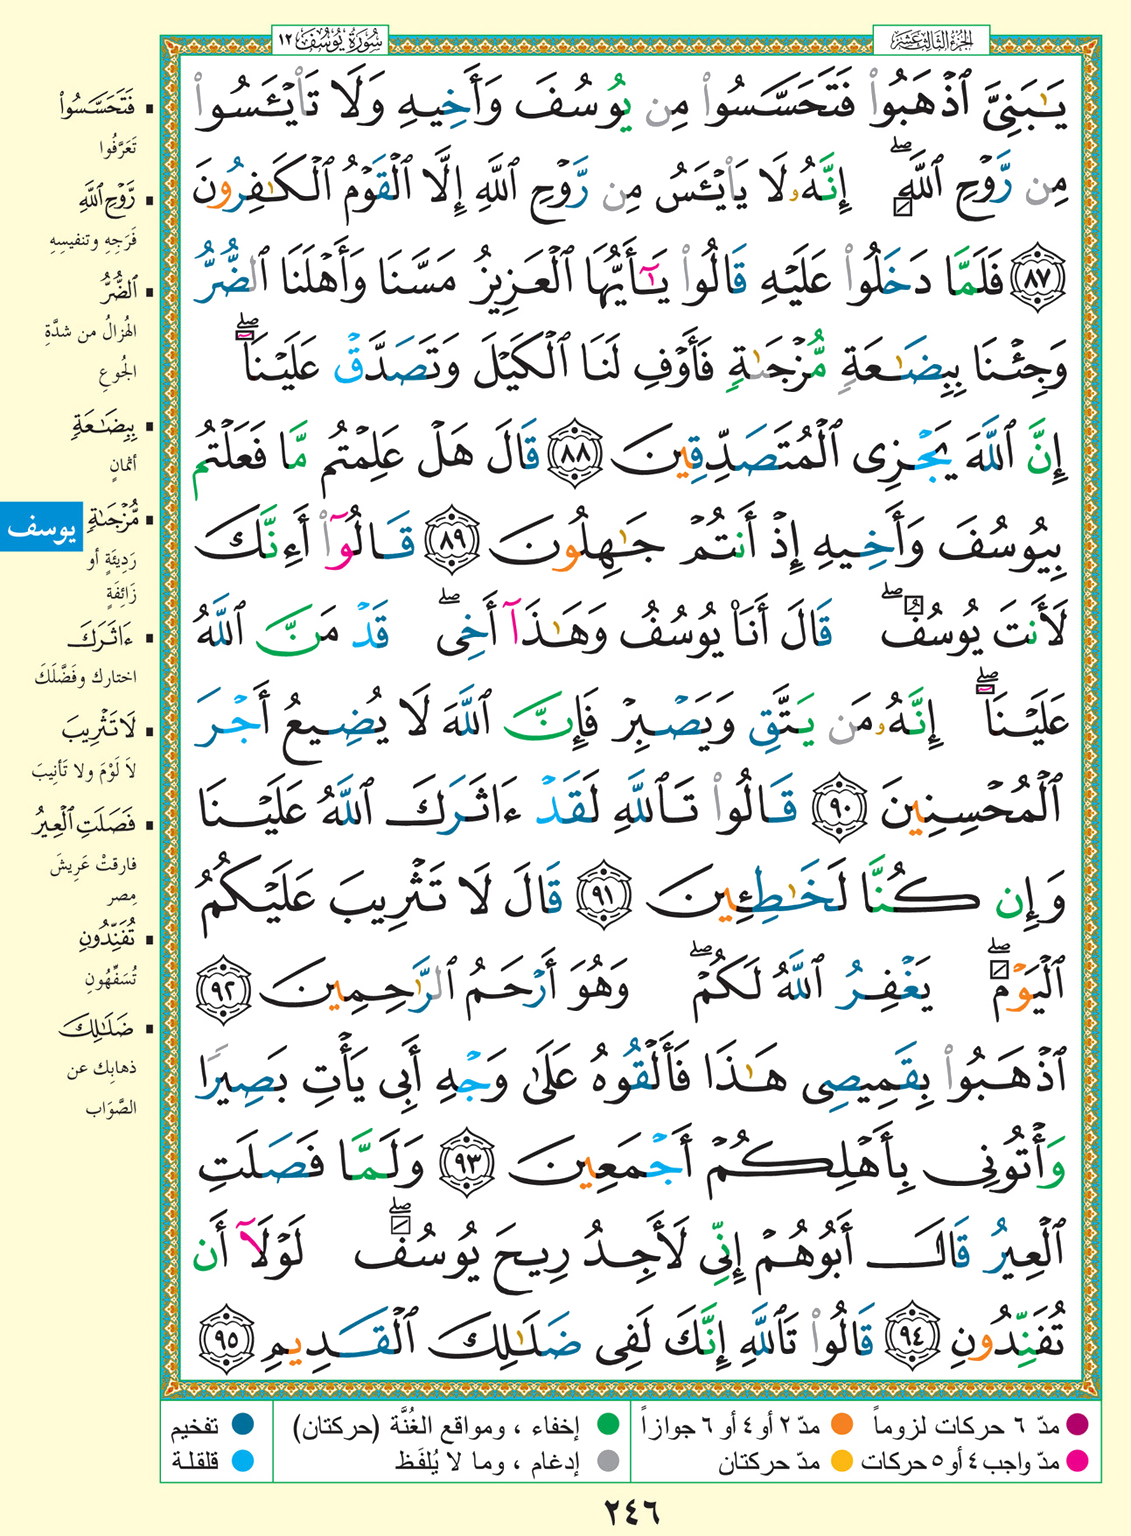 الجزء الثالث عشر
سورة يوسف ١٢
يَـٰبَنِىَّ ٱذْهَبُوا۟ فَتَحَسَّسُوا۟ مِن يُوسُفَ وَأَخِيهِ وَلَا تَا۟يْـَٔسُوا۟
مِن رَّوْحِ ٱللَّهِ ۖ إِنَّهُۥ لَا يَا۟يْـَٔسُ مِن رَّوْحِ ٱللَّهِ إِلَّا ٱلْقَوْمُ ٱلْكَـٰفِرُونَ
٨٧ فَلَمَّا دَخَلُوا۟ عَلَيْهِ قَالُوا۟ يَـٰٓأَيُّهَا ٱلْعَزِيزُ مَسَّنَا وَأَهْلَنَا ٱلضُّرُّ
وَجِئْنَا بِبِضَـٰعَةٍ مُّزْجَىٰةٍ فَأَوْفِ لَنَا ٱلْكَيْلَ وَتَصَدَّقْ عَلَيْنَآ ۖ
إِنَّ ٱللَّهَ يَجْزِى ٱلْمُتَصَدِّقِينَ ٨٨ قَالَ هَلْ عَلِمْتُم مَّا فَعَلْتُم
بِيُوسُفَ وَأَخِيهِ إِذْ أَنتُمْ جَـٰهِلُونَ ٨٩ قَالُوٓا۟ أَءِنَّكَ
لَأَنتَ يُوسُفُ ۖ قَالَ أَنَا۠ يُوسُفُ وَهَـٰذَآ أَخِى ۖ قَدْ مَنَّ ٱللَّهُ
عَلَيْنَآ ۖ إِنَّهُۥ مَن يَتَّقِ وَيَصْبِرْ فَإِنَّ ٱللَّهَ لَا يُضِيعُ أَجْرَ
ٱلْمُحْسِنِينَ ٩٠ قَالُوا۟ تَٱللَّهِ لَقَدْ ءَاثَرَكَ ٱللَّهُ عَلَيْنَا
وَإِن كُنَّا لَخَـٰطِـِٔينَ ٩١ قَالَ لَا تَثْرِيبَ عَلَيْكُمُ
ٱلْيَوْمَ ۖ يَغْفِرُ ٱللَّهُ لَكُمْ ۖ وَهُوَ أَرْحَمُ ٱلرَّٰحِمِينَ ٩٢
ٱذْهَبُوا۟ بِقَمِيصِى هَـٰذَا فَأَلْقُوهُ عَلَىٰ وَجْهِ أَبِى يَأْتِ بَصِيرًا
وَأْتُونِى بِأَهْلِكُمْ أَجْمَعِينَ ٩٣ وَلَمَّا فَصَلَتِ
ٱلْعِيرُ قَالَ أَبُوهُمْ إِنِّى لَأَجِدُ رِيحَ يُوسُفَ ۖ لَوْلَآ أَن
تُفَنِّدُونِ ٩٤ قَالُوا۟ تَٱللَّهِ إِنَّكَ لَفِى ضَلَـٰلِكَ ٱلْقَدِيمِ ٩٥
فَتَحَسَّسُوا۟
تَعَرَّفُوا
رَّوْحِ ٱللَّهِ
فَرَجِهِ وتنفيسِهِ
ٱلضُّرُّ
الهُزالُ من شدَّةِ
الجُوعِ
بِبِضَـٰعَةٍ
أثمانٍ
مُّزْجَىٰةٍ
رَدِيئَةٍ أو
زَائِفَةٍ
ءَاثَرَكَ
اختارك وفَضَّلَكَ
لَا تَثْرِيبَ
لاَ لَوْمَ ولا تَأنِيبَ
فَصَلَتِ ٱلْعِيرُ
فارقتْ عَرِيشَ
مِصر
تُفَنِّدُونِ
تُسَفِّهُونِ
ضَلَـٰلِكَ
ذهابِك عن
الصَّوَاب
يوسف
مدّ ٦ حركات لزوماً
مدّ ٢ أو ٤ أو ٦ جوازاً
إخفاء ، ومواقع الغُنَّة (حركتان)
تفخيم
مدّ واجب ٤ أو ٥ حركات
مدّ حركتان
إدغام ، وما لا يُلفَظ
قلقلة
٢٤٦